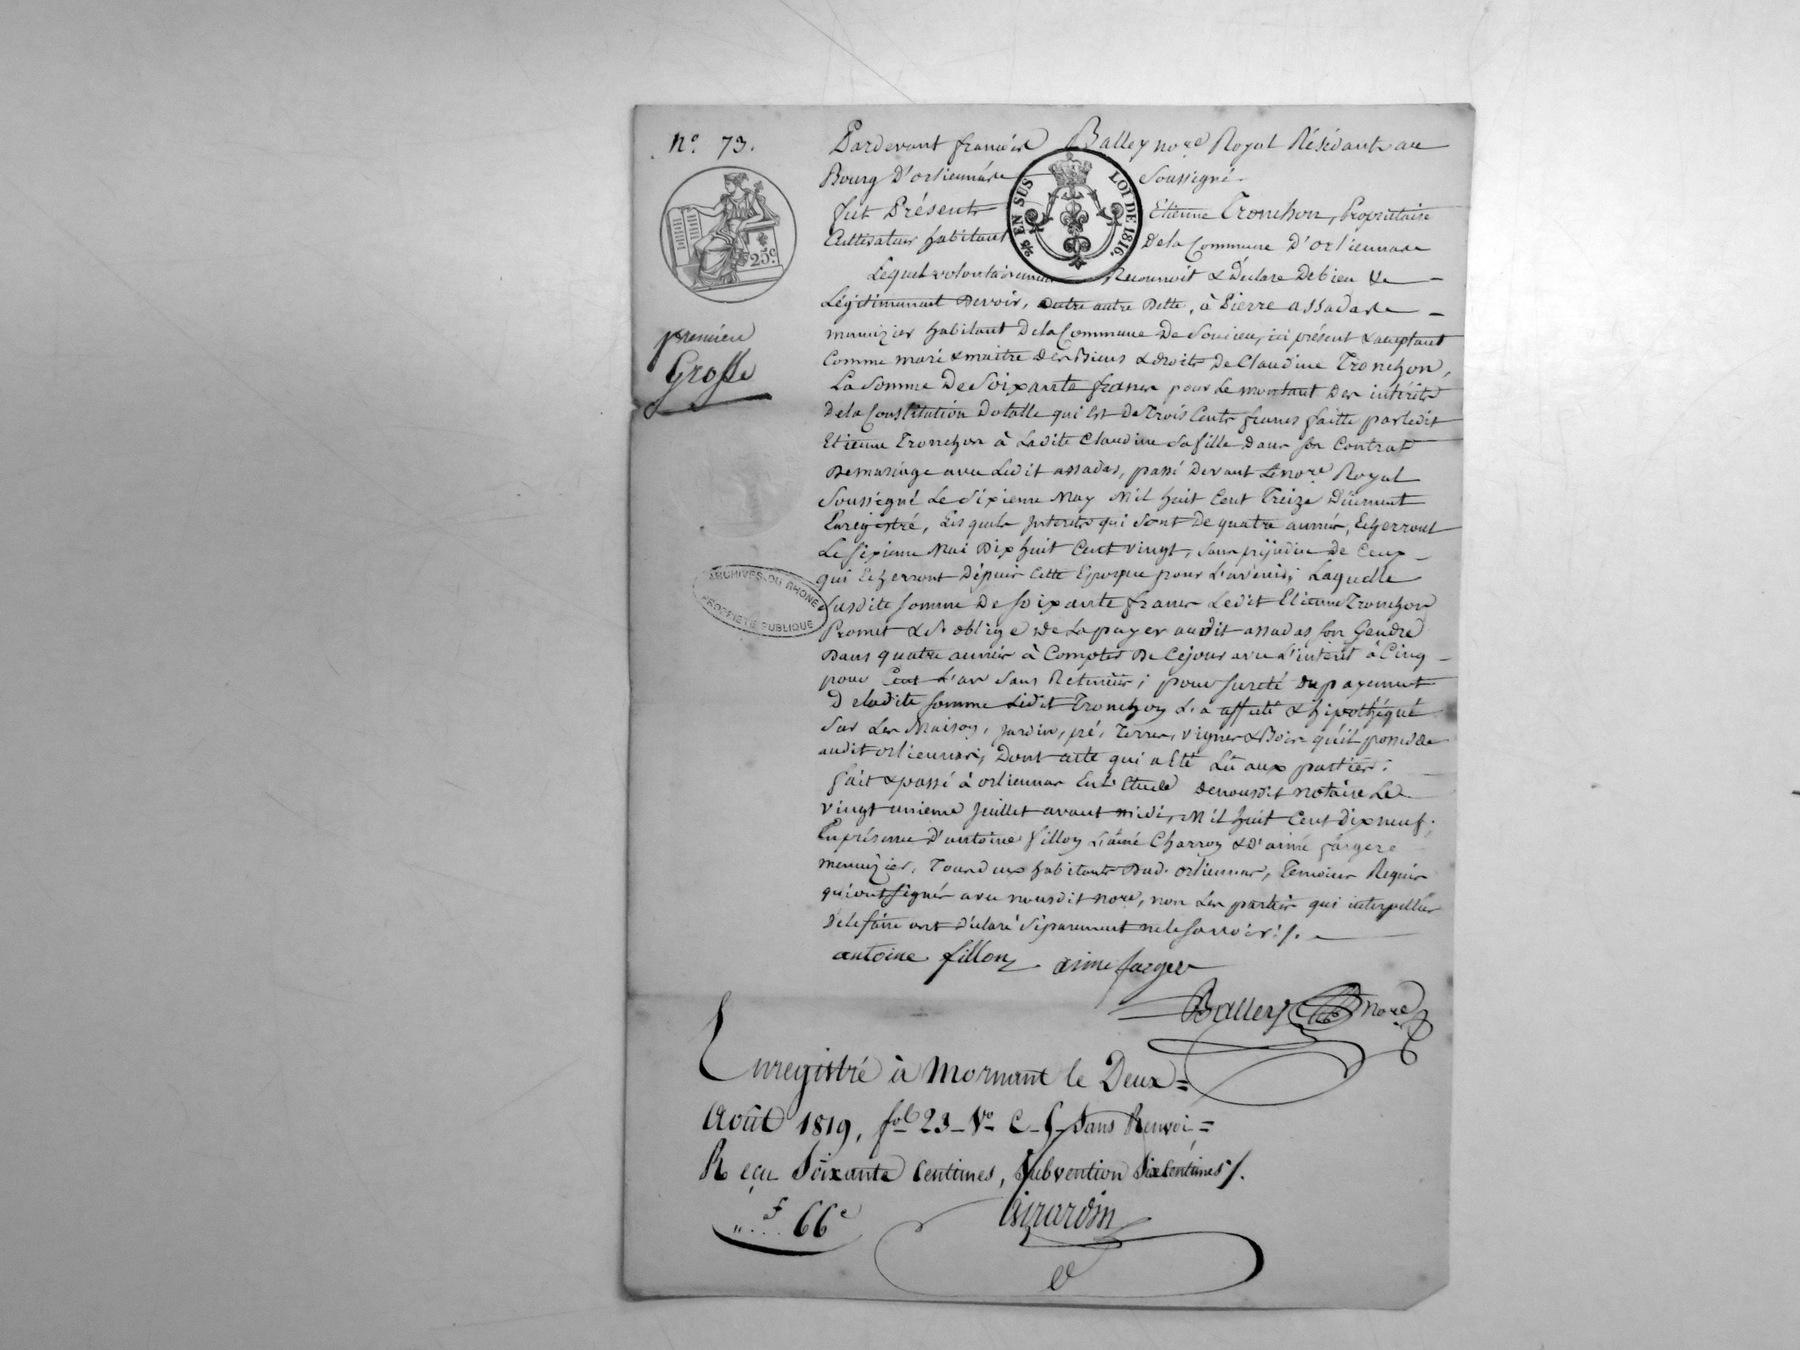 N.º 73.
Pardevant francois Balley no.re Royal Résidant au
Bourg D'orliennas Soussigné
fut Présent Etienne Tronchon, Propriétaire
Cultivateur habitant De la Commune D'orliennas
Lequel volontairement Reconnoit & Déclare Debien &
Légitimement Devoir, outre autre Dette, à Pierre assadas
menuizier habitant De la Commune De Soucieu, ici présent & acceptant
Comme mari & maitre Des Biens & droits De Claudine Tronchon,
La Somme De Soixante francs pour Le montant Des intérêts
De la Constitution Dotalle qui Est De Trois Cents francs faitte par ledit
Etienne Tronchon à Ladite Claudine Sa fille Dans Son Contrat
De mariage avec Ledit assadas, passé Devant Le no.re Royal
Soussigné Le Sixieme May Mil huit Cent Treize Dûement
Enregistré, Lesquels Interets qui Sont De quatre années, Echerront
Le Sixieme Mai Dix huit Cent vingt, Sans préjudice De Ceux
qui Echerront Dépuis Cette Epoque pour L'avenir; Laquelle
Susdite Somme De Soixante francs Ledit Etienne Tronchon
Promet & S'oblige De La payer audit assadas Son Gendre
Dans quatre années à Compter De Cejour avec L'intérêt à Cinq
pour Cent L'an Sans Retenue; pour Sureté Du payement
De ladite Somme Ledit Tronchon L'a affecté & hipothéqué
Sur Les Maison, jardin, pré, Terres, vignes & Bois qu'il possede
audit orliennas; Dont acte qui a Eté Lû aux parties.
fait & passé à orliennas En L'Etude De nousdit notaire Le
vingt unieme Juillet avant midi, Mil huit Cent Dix neuf.
En présence D'antoine fillon L'ainé Charron & D'aimé fargere
menuizier, Tous deux habitants Dud. orliennas, Témoins Requis
qui ont Signés avec nousdit no.re, non Les parties qui interpellées
De le faire ont Déclaré Séparement ne le Savoir ./.
antoine fillon aime farger
Balley no.re
première
Grosse
EN SUS LOI DE 1816.
25.c
ARCHIVES DU RHONE
PROPRIÉTÉ PUBLIQUE
Enregistré à Mornant le Deux =
Août 1819, fol 23 V.o C. 5 Sans Renvoi =
Reçu Soixante Centimes, Subvention Six Centimes ./.
f 66 c
Girardin